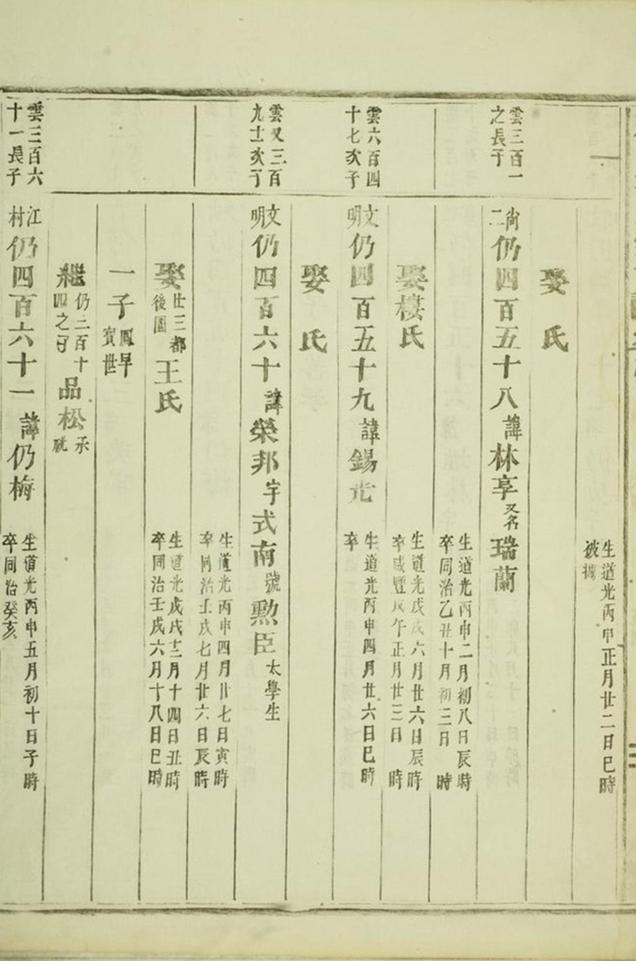 生道光丙申正月廿二日巳時
被擄
娶 氏
雲三百一
之長子
尚二仍四百五十八諱林享又名瑞蘭
生道光丙申二月初八日辰時
卒同治乙丑十月初三日 時
娶樓氏
生道光戊戌六月廿六日辰時
卒咸豐戊午正月廿三日 時
雲六百四
十七次子
文明仍四百五十九諱錫光
生道光丙申四月廿六日巳時
卒
娶 氏
雲又三百
九十次子
文明仍四百六十諱榮邦字式南號勲臣太學生
生道光丙申四月廿七日寅時
卒同治壬戌七月廿六日辰時
娶仕三都後園王氏
生道光戊戌十二月十四日丑時
卒同治壬戌六月十八日巳時
一子鳳賓早世
繼仍二百十四之子品松承祧
雲三百六
十一長子
江村仍四百六十一諱仍梅
生道光丙申五月初十日子時
卒同治癸亥